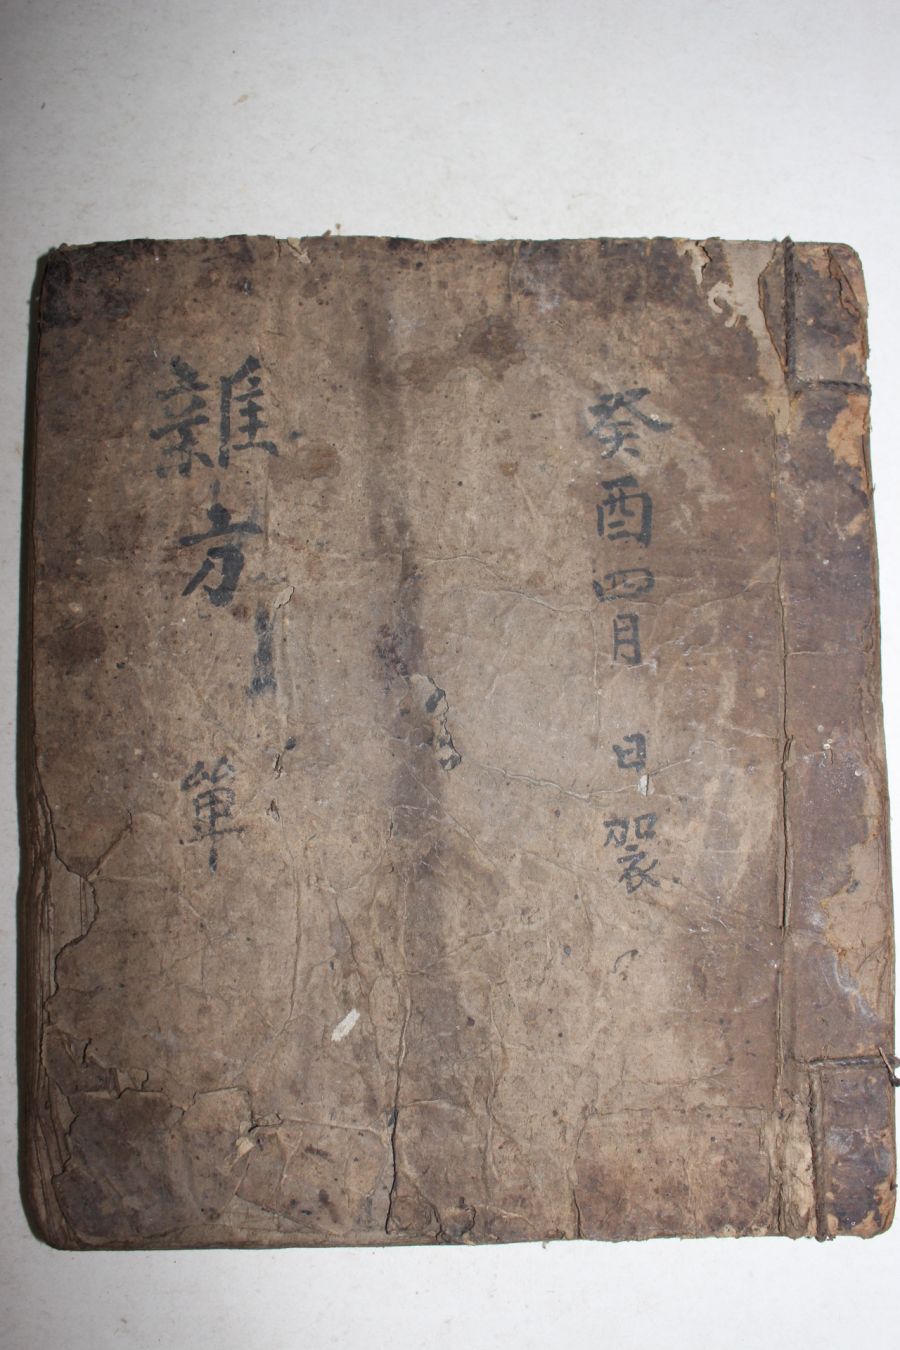 癸酉四月 日袈
雜方 單